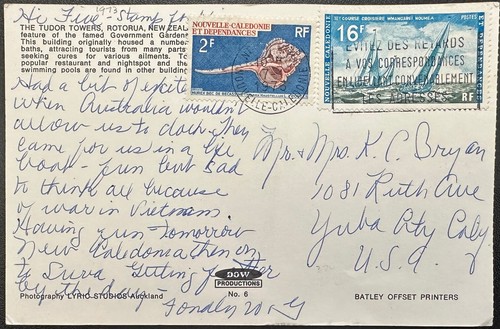 1973
Hi Five - Stamp for
THE TUDOR TOWERS, ROTORUA, NEW ZEA
feature of the famed Government Garden
This building originally housed a number
baths, attracting tourists from many parts
seeking cures for various ailments. To
popular restaurant and nightspot and the
swimming pools are found in other buildin
Had a bit of excite
when Australia wouldn't
allow us to dock. They
came for us in a life
boat - fun but sad
to think all because
of war in Vietnam.
Having fun tomorrow
New Caledonia then on
to Suva Getting fatter
by the day - Fondly
NOUVELLE-CALÉDONIE
ET DÉPENDANCES
2F
RF
NOUVELLE-CALÉDONIE
NOUVELLE-CALÉDONIE ET DÉPENDANCES
2e COURSE CROISIERE WHANGAREI NOUMEA
16F
RF
EVITEZ DES RETARDS
A VOS CORRESPONDANCES
EN LIBELLANT CONVENABLEMENT
LES ADRESSES
Mr. & Mrs. K. C. Bryan
1081 Ruth Ave
Yuba City Caly.
U.S.A.
DOW
PRODUCTIONS
No. 6
Photography LYRIC STUDIOS - Auckland
BATLEY OFFSET PRINTERS